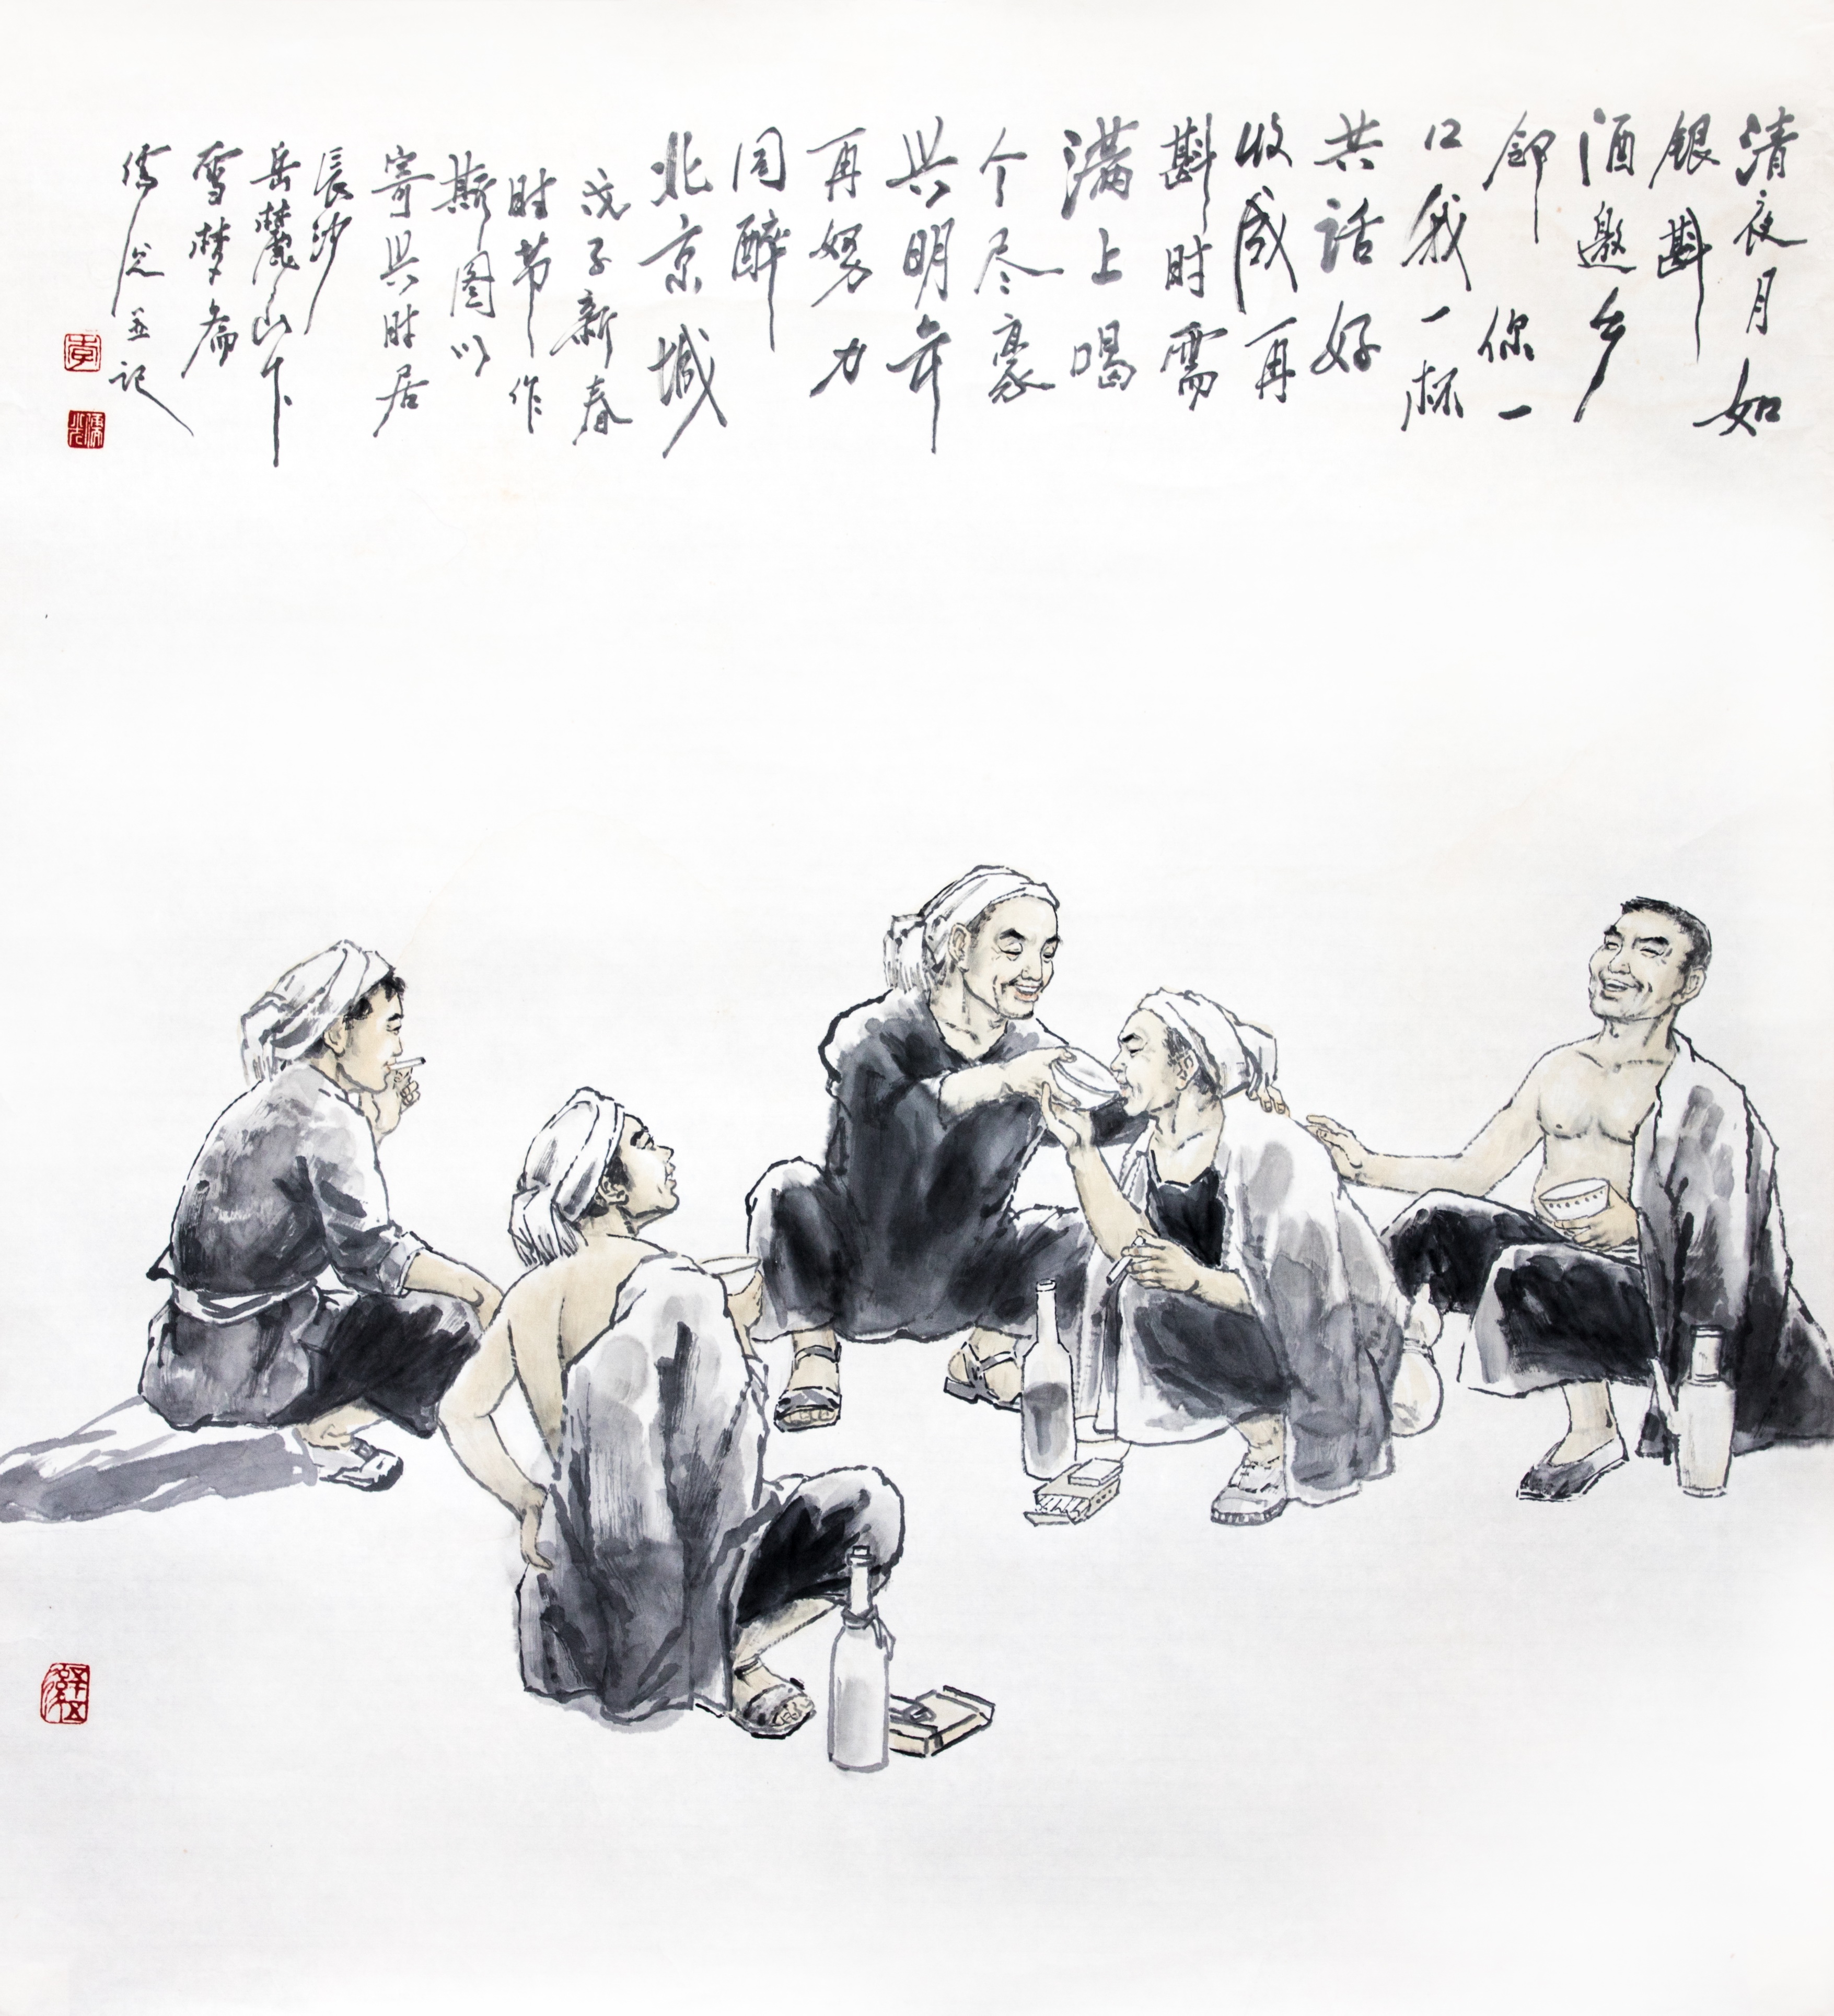 清夜月如
银斟
酒邀乡
邻你一
口我一杯
共话好
收成再
斟时需
满上喝
个尽豪
兴明年
再努力
同醉
北京城
戊子新春
时节作
斯图以
寄兴时居
长沙
岳麓山下
雪梦斋
儒光并记
李
儒光